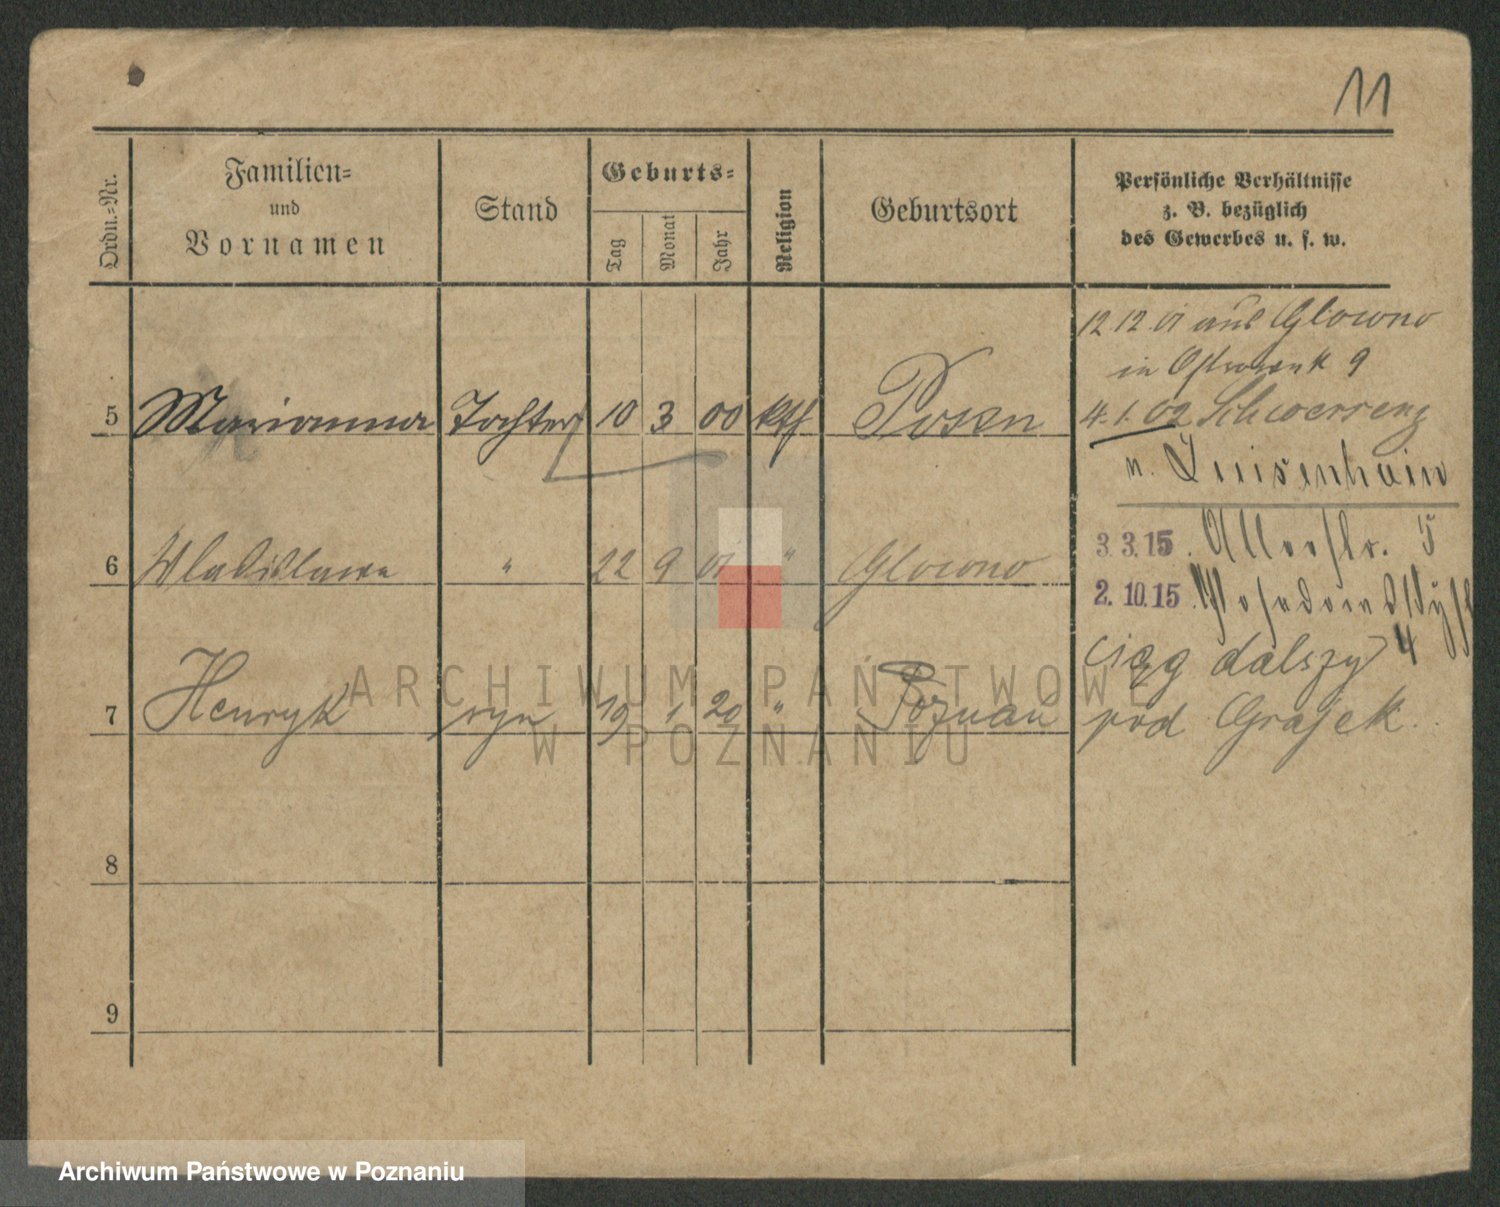 11
Ordn.-Nr.
Familien-
und
Vornamen
Stand
Geburts-
Tag
Monat
Jahr
Religion
Geburtsort
Persönliche Verhältnisse
z. B. bezüglich
des Gewerbes u. s. w.
12.12.01 aus Glowno
in 9
5 Marianna Tochter 10 3 00 kth Posen
4.1.02 Schwersenz
n. Luisenhain
3.3.15. 5
6 Wladislawa " 22 9 01 " Glowno
2.10.15.
4
ciąg dalszy
7 Henryk syn 19 1 20 " Poznań
pod Grajek
8
9
ARCHIWUM PAŃSTWOWE
W POZNANIU
Archiwum Państwowe w Poznaniu